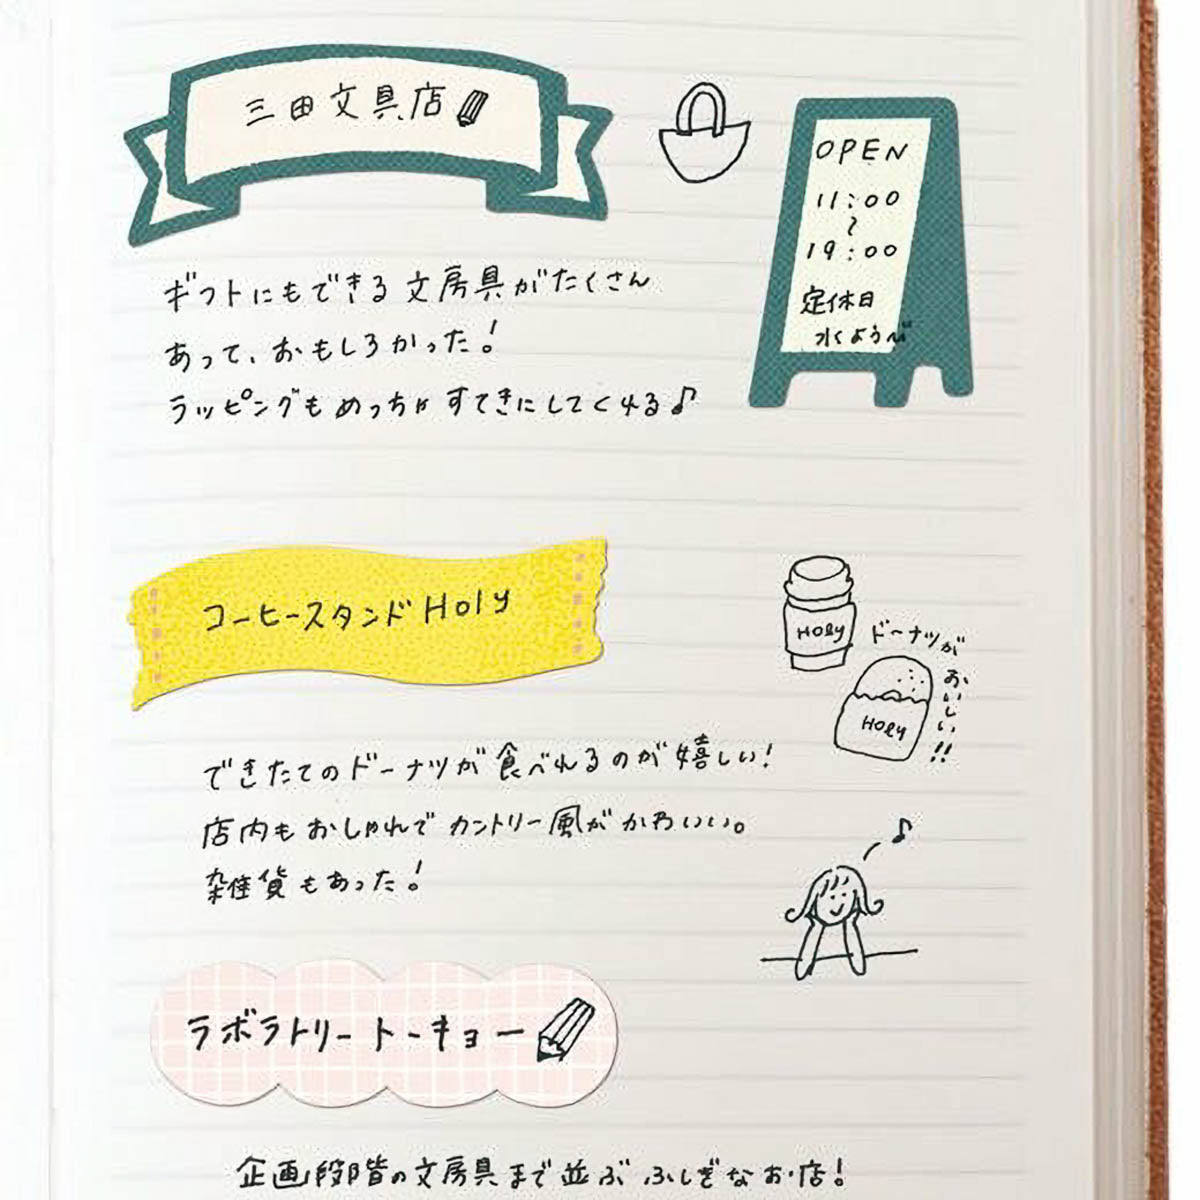 三田文具店
OPEN
11:00
〜
19:00
定休日
水ようび
ギフトにもできる文房具がたくさん
あって、おもしろかった!
ラッピングもめっちゃすてきにしてくれる♪
コーヒースタンドHoly
Holy
ドーナツが
おいしい!!
Holy
できたてのドーナツが食べれるのが嬉しい!
店内もおしゃれでカントリー風がかわいい。
雑貨もあった!
ラボラトリートーキョー
企画段階の文房具まで並ぶふしぎなお店!